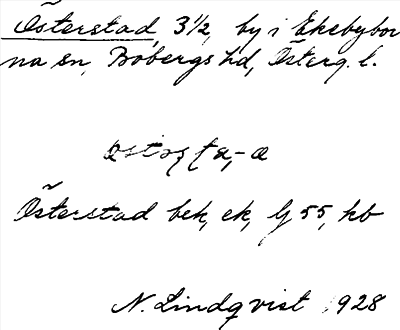 Österstad, 3 1/2, by i Ekebybor
na sn, Bobergs hd, Österg. l.
Österstad bek, ek, G 55, kb
N. Lindqvist 1928